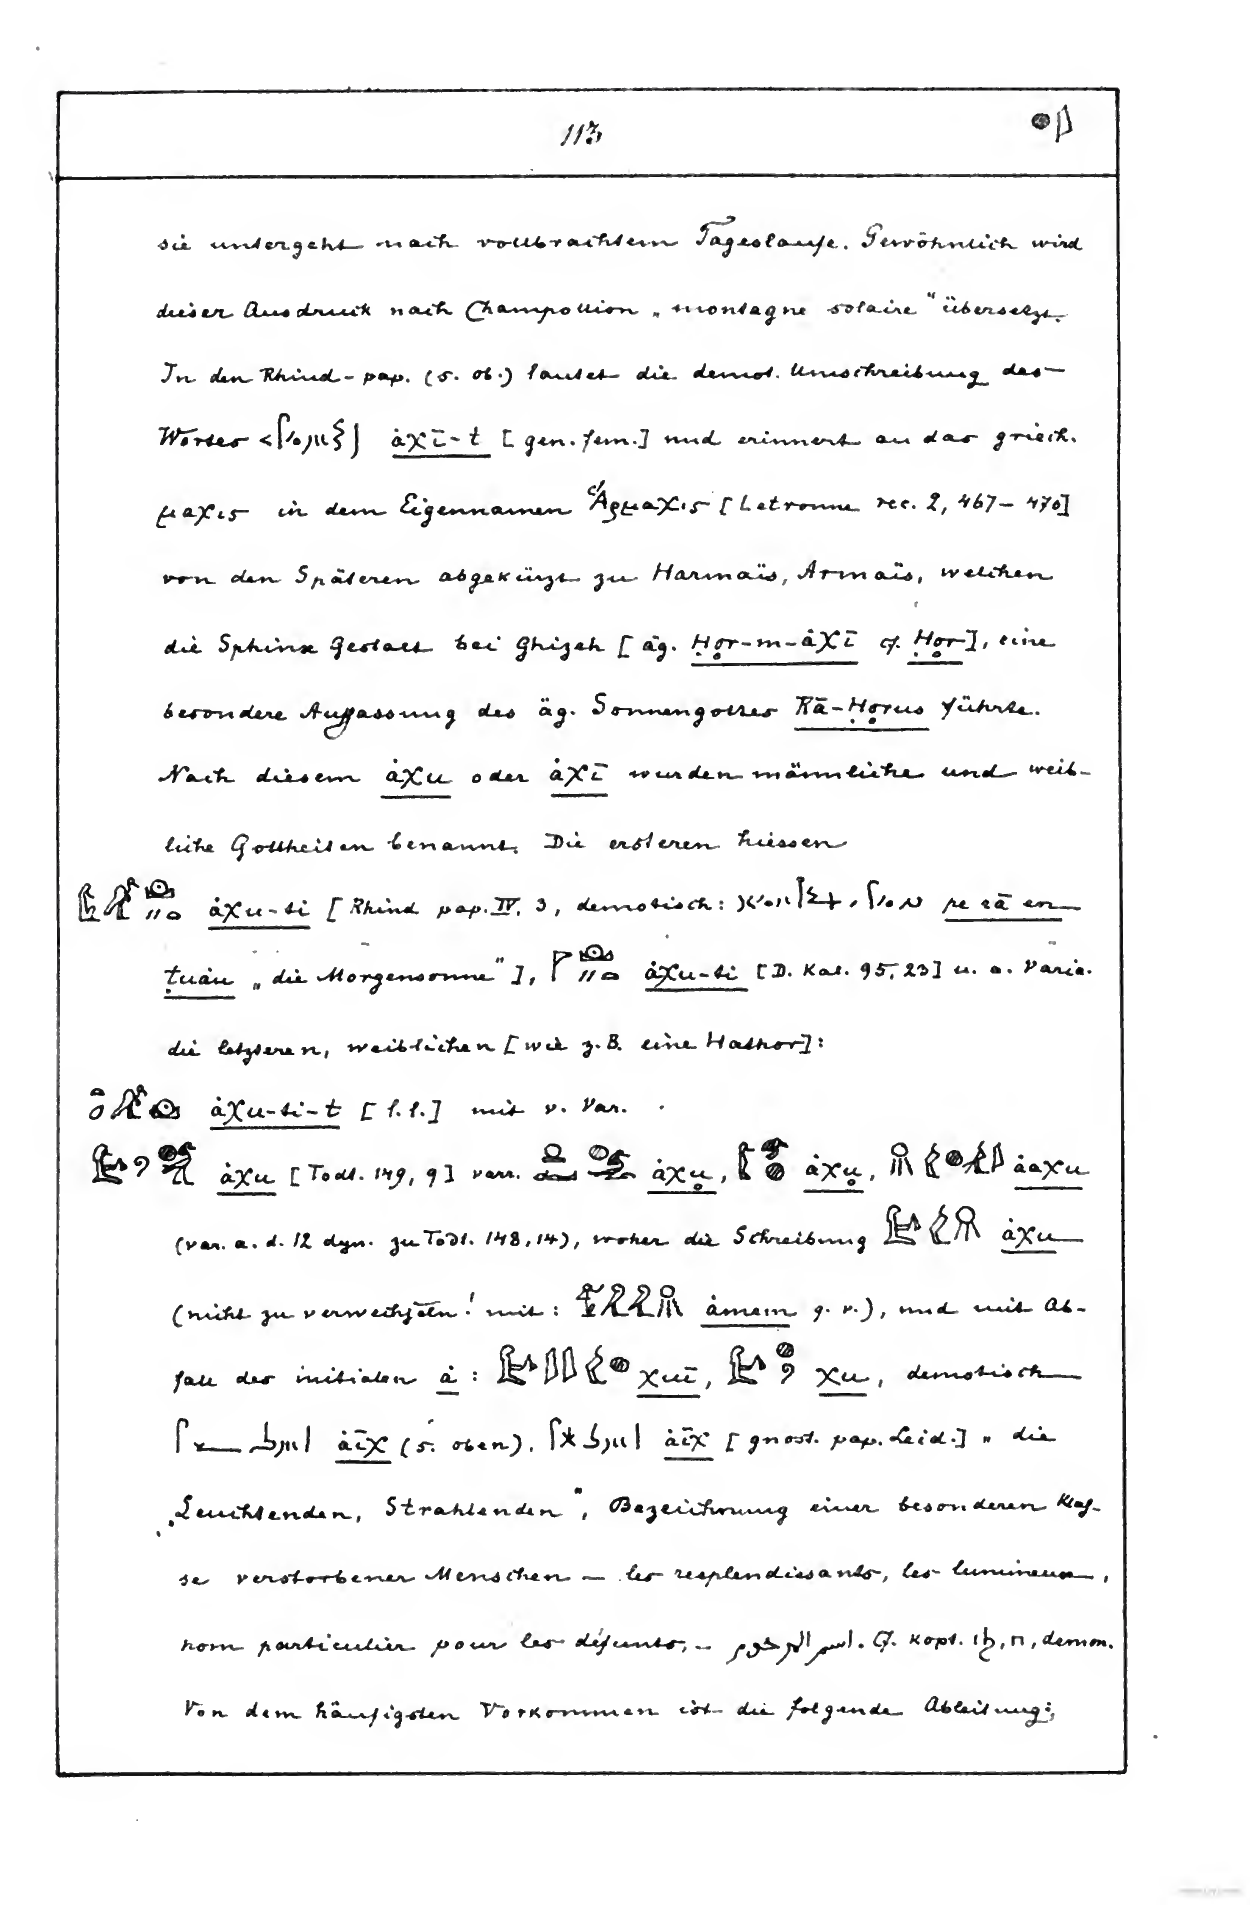 113
sie untergeht nach vollbrachtem Tageslaufe. Gewöhnlich wird
dieser Ausdruck nach Champollion „montagne solaire“ übersetzt.
In den Rhind-pap. (s. ob.) lautet die demot. Umschreibung des
Wortes ȧχī-t [gen. fem.] und erinnert an das griech.
μαχις in dem Eigennamen Ἅρμαχις [Letronne rec. 2, 467–470]
von den Späteren abgekürzt zu Harmaïs, Armaïs, welchen
die Sphinx Gestalt bei Ghizeh [äg. Ḥor-m-ȧχī cf. Ḥor], eine
besondere Auffassung des äg. Sonnengottes Rā-Ḥorus führte.
Nach diesem ȧχu oder ȧχī wurden männliche und weib-
liche Gottheiten benannt. Die ersteren hiessen
ȧχu-ti [Rhind pap. IV, 3, demotisch: pe rā en
ṭuȧu „die Morgensonne“], ȧχu-ti [D. Kal. 95, 23] u. a. Varia.
die letzteren, weiblichen [wie z. B. eine Hathor]:
ȧχu-ti-t [l. l.] mit v. Var.
ȧχu [Todt. 149, 9] varr. ȧχu̥, ȧχu̥, ȧaχu
(var. a. d. 12 dyn. zu Todt. 148, 14), woher die Schreibung ȧχu
(nicht zu verwechseln! mit: ȧmem q. v.), und mit Ab-
fall des initialen ȧ: χuī, χu, demotisch
ȧīχ (s. oben), ȧīχ [gnost. pap. Leid.] „die
Leuchtenden, Strahlenden“, Bezeichnung einer besonderen Klas-
se verstorbener Menschen – les resplendissants, les lumineux,
nom particulier pour les défunts, – اسم المرحوم. Cf. kopt. ⲓϧ, ⲡ, demon.
Von dem häufigsten Vorkommen ist die folgende Ableitung: